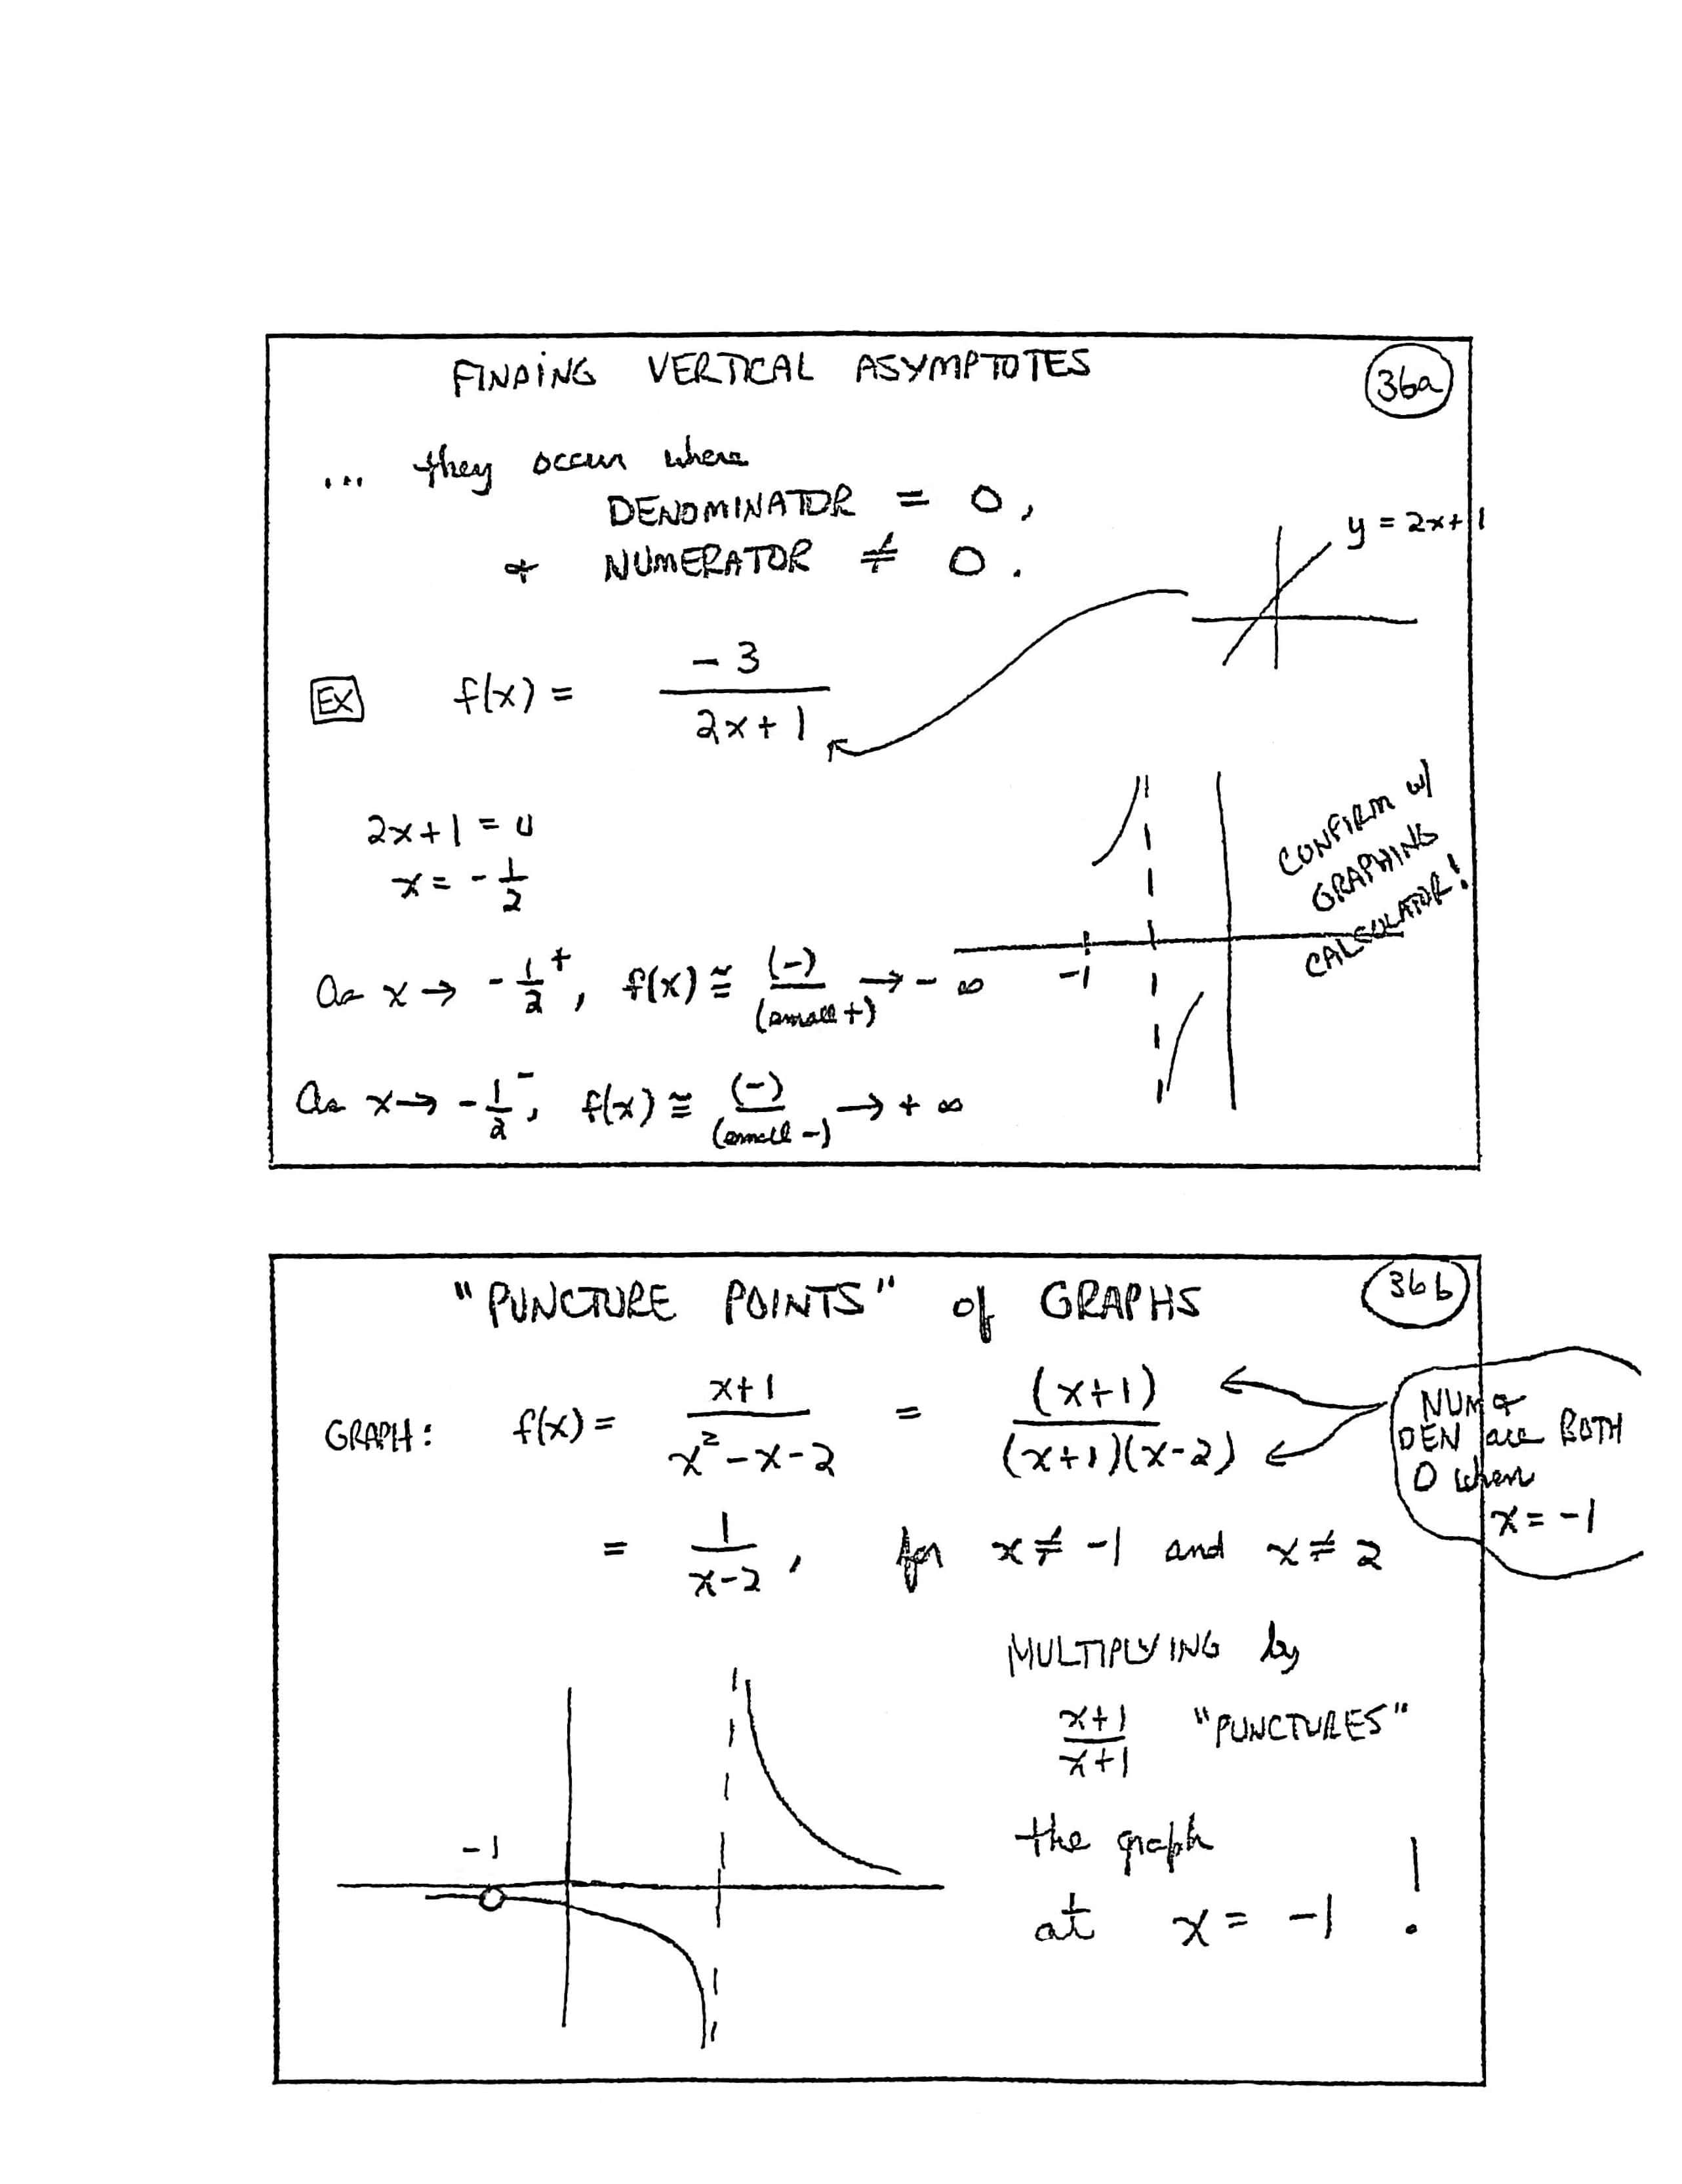 FINDING VERTICAL ASYMPTOTES
36a
... they occur where
DENOMINATOR = 0,
& NUMERATOR ≠ 0.
y = 2x+1
EX f(x) = -3/(2x+1)
2x+1 = 0
x = -1/2
CONFIRM w/
GRAPHING
CALCULATOR!
-1
As x → -1/2⁺, f(x) ≅ (-)/(small +) → -∞
As x → -1/2⁻, f(x) ≅ (-)/(small -) → +∞
"PUNCTURE POINTS" of GRAPHS
36b
GRAPH: f(x) = (x+1)/(x²-x-2) = (x+1)/((x+1)(x-2))
NUM &
DEN are BOTH
0 when
x = -1
= 1/(x-2), for x ≠ -1 and x ≠ 2
MULTIPLYING by
(x+1)/(x+1) "PUNCTURES"
the graph
at x = -1 !
-1